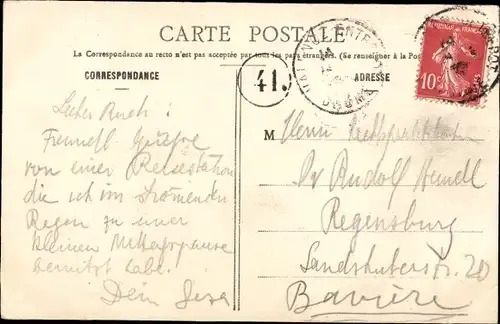 CARTE POSTALE
La Correspondance au recto n'est pas acceptée par tous les pays étrangers. (Se renseigner à la Poste)
CORRESPONDANCE
ADRESSE
41.
10c
M
Lieber Rudi!
Freundl. Grüsse
von einer Reisestation
die ich im strömenden
Regen zu einer
kleinen Mittagspause
benützt habe.
Dein
Herrn
Dr Rudolf
Regensburg
Landshuterstr. 20
Bavière